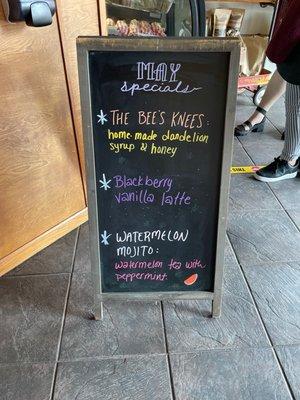 MAY
specials
* THE BEE'S KNEES:
home-made dandelion
syrup & honey
* Blackberry
vanilla latte
* WATERMELON
MOJITO:
watermelon tea with
peppermint